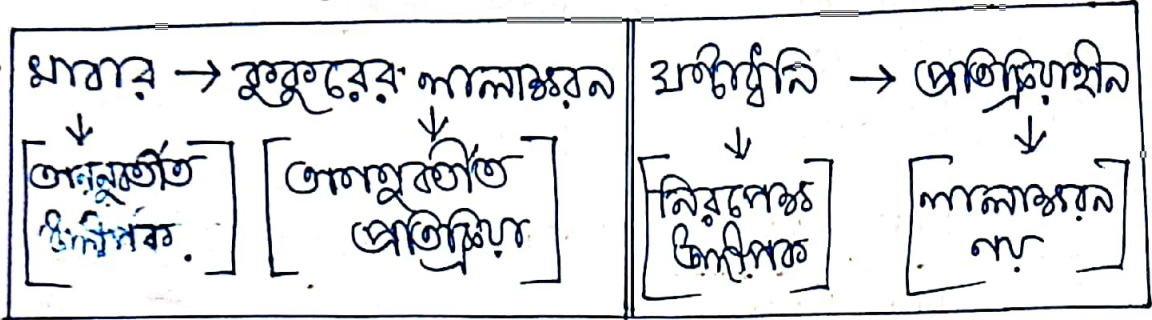 খাবার → কুকুরের লালাক্ষরন
↓ ↓
[অননুবর্তীত উদ্দীপক] [অননুবর্তীত প্রতিক্রিয়া]
ঘন্টাধ্বনি → প্রতিক্রিয়াহীন
↓ ↓
[নিরপেক্ষ উদ্দীপক] [লালাক্ষরন নয়]